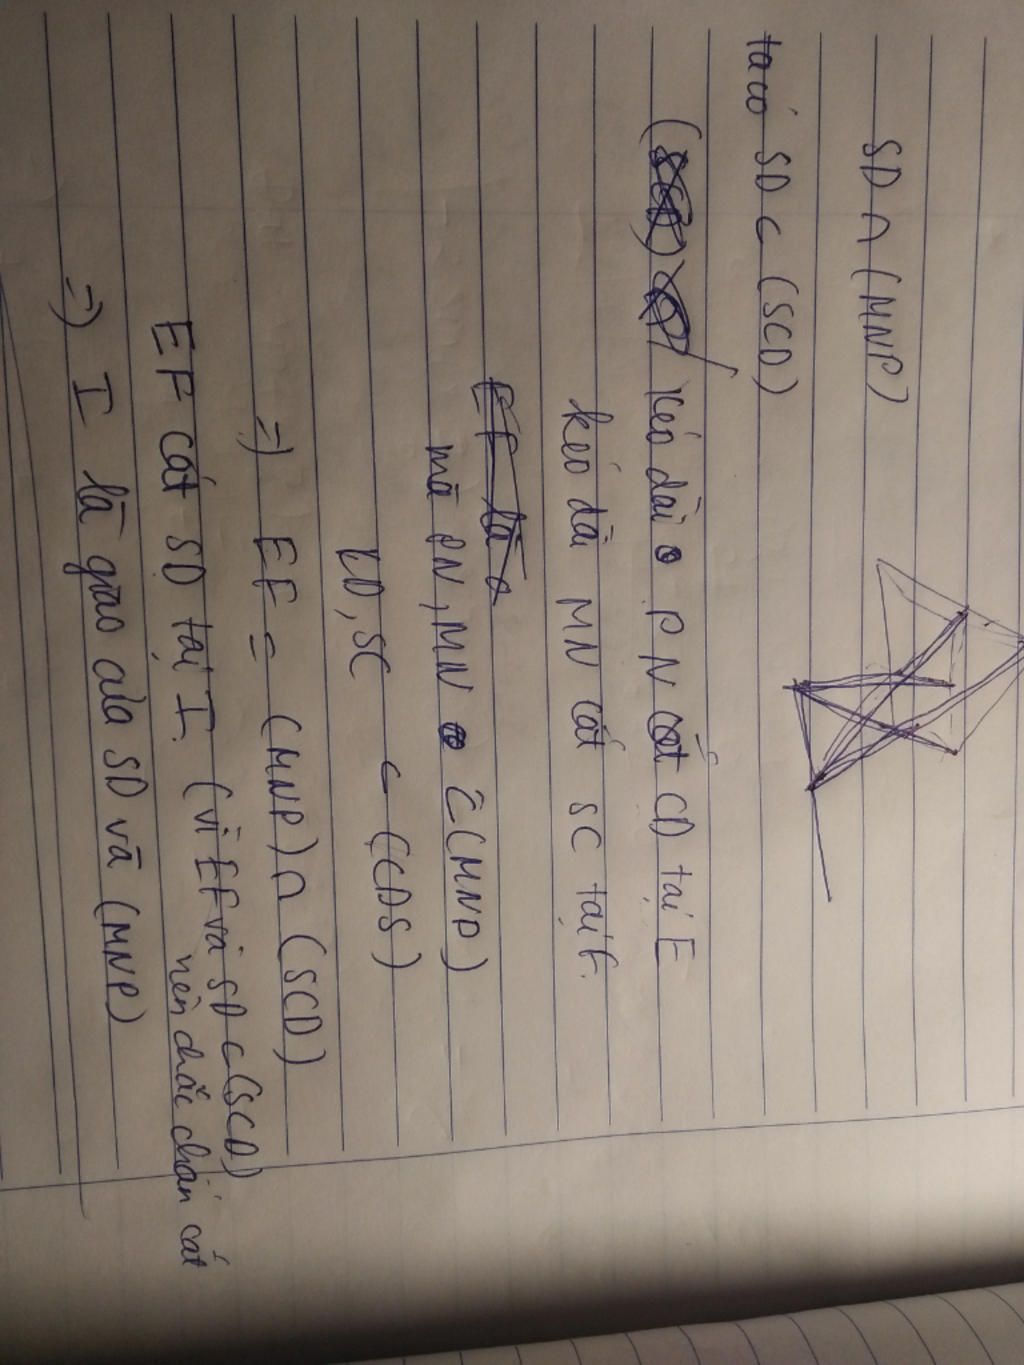 SD ∩ (MNP)
ta có SD ⊂ (SCD)
kéo dài PN cắt CD tại E
kéo dài MN cắt SC tại F.
EF là
mà PN, MN ⊂ (MNP)
SC ⊂ (CDS)
=) EF = (MNP) ∩ (SCD)
EF cắt SD tại I. (vì EF và SD ⊂ (SCD)
nên chắc chắn cắt
=) I là giao của SD và (MNP)